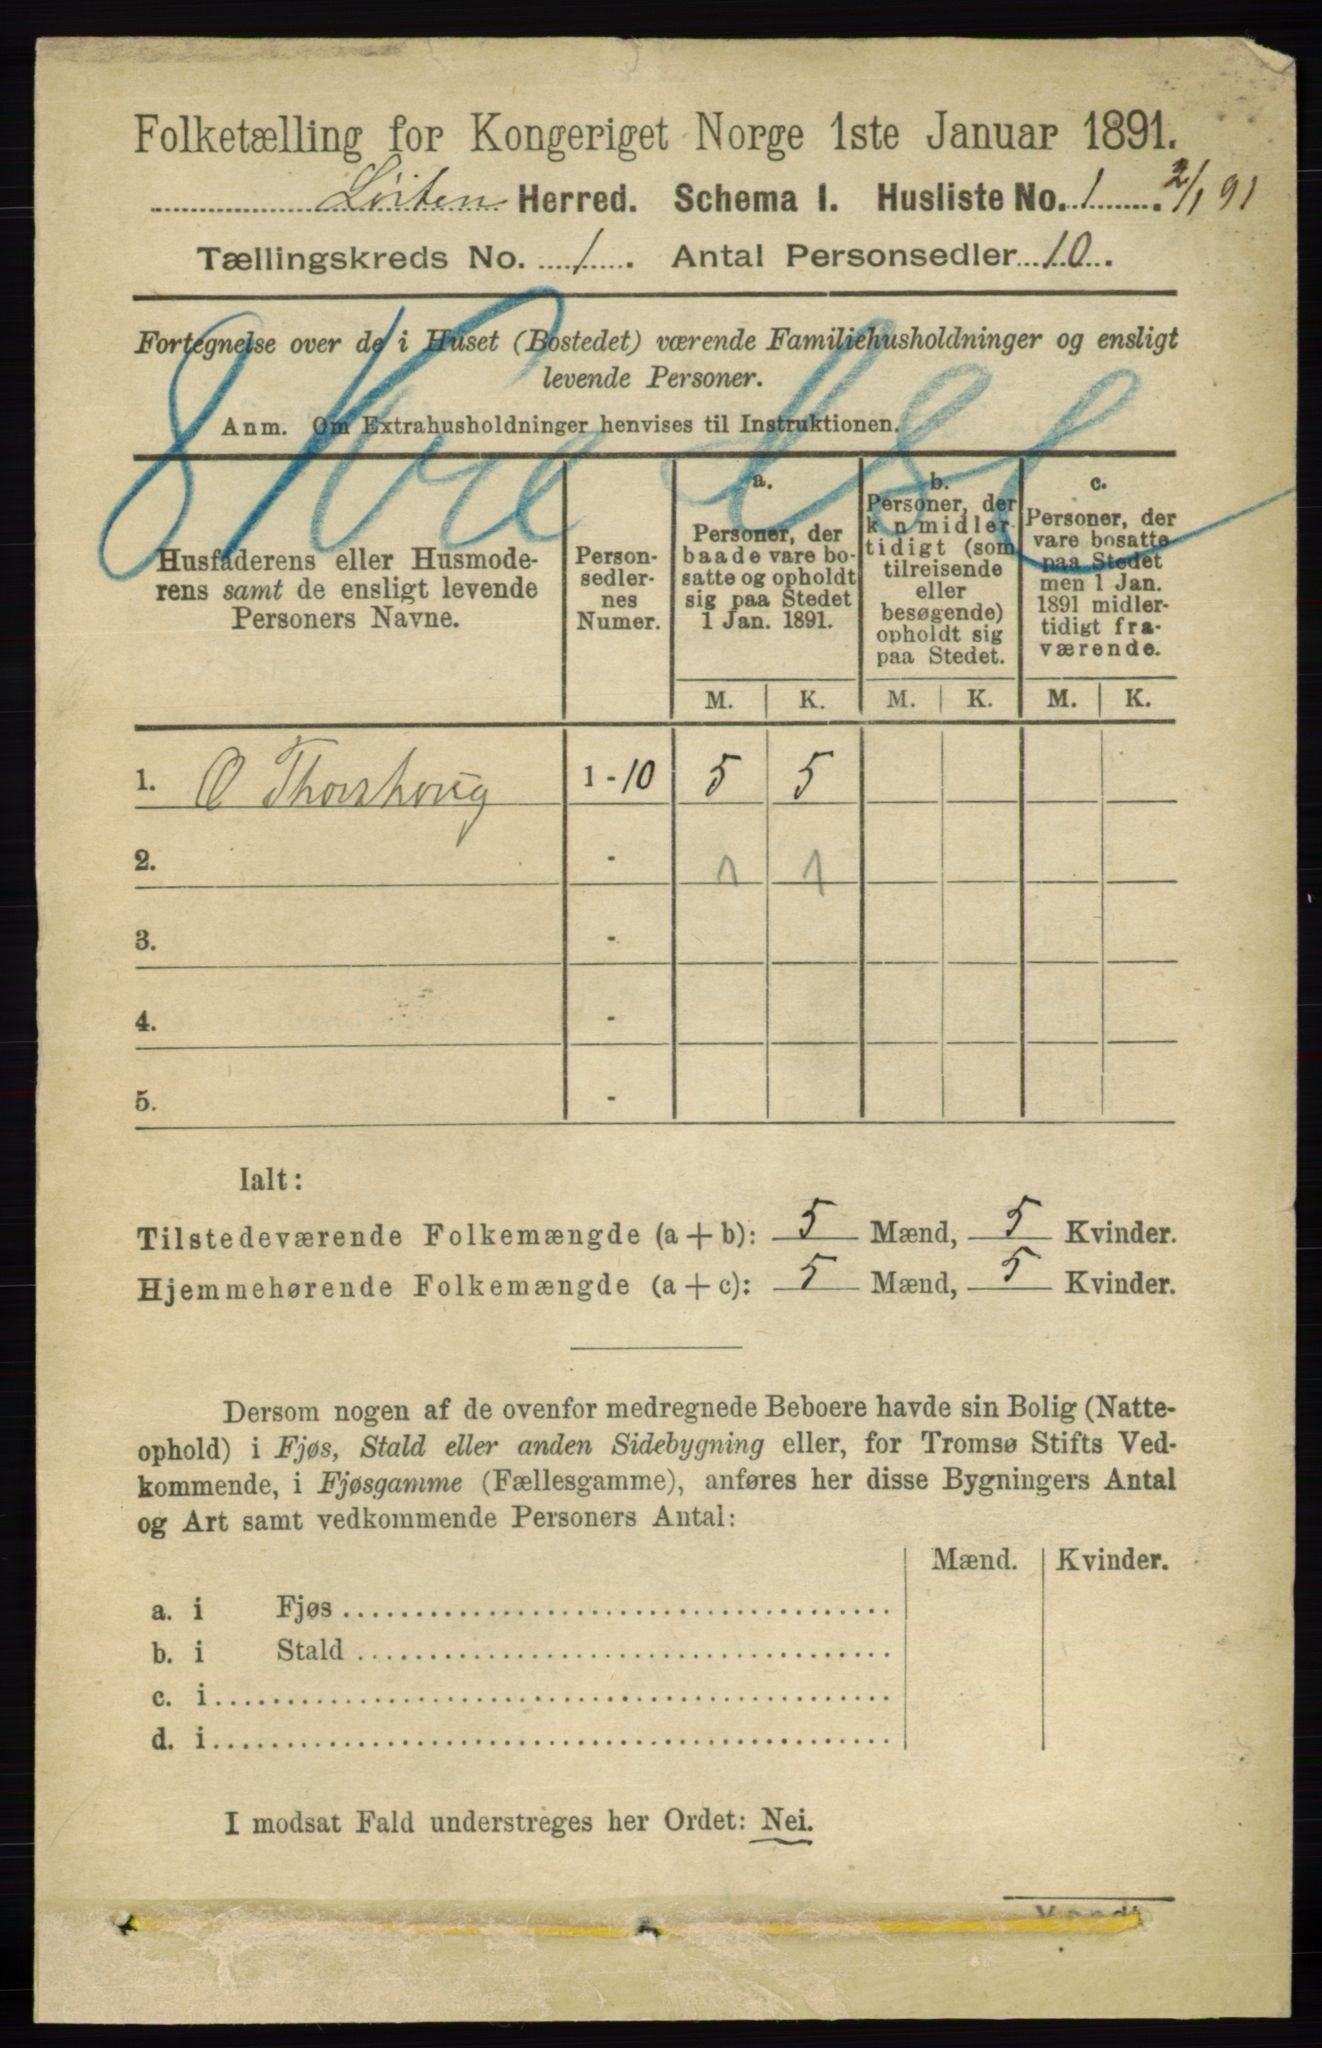 Folketælling for Kongeriget Norge 1ste Januar 1891.
Løiten Herred. Schema I. Husliste No. 1. 2/1 91
Tællingskreds No. 1. Antal Personsedler 10.
Fortegnelse over de i Huset (Bostedet) værende Familiehusholdninger og ensligt
levende Personer.
Anm. Om Extrahusholdninger henvises til Instruktionen.
Husfaderens eller Husmode-
rens samt de ensligt levende
Personers Navne.
Person-
sedler-
nes
Numer.
a.
Personer, der
baade vare bo-
satte og opholdt
sig paa Stedet
1 Jan. 1891.
b.
Personer, der
kun midler-
tidigt (som
tilreisende
eller
besøgende)
opholdt sig
paa Stedet.
c.
Personer, der
vare bosatte
paa Stedet
men 1 Jan.
1891 midler-
tidigt fra-
værende.
M. K. M. K. M. K.
1. O Thorshoug 1 - 10 5 5
2. - 1 1
3. -
4. -
5. -
Ialt:
Tilstedeværende Folkemængde (a + b): 5 Mænd, 5 Kvinder.
Hjemmehørende Folkemængde (a + c): 5 Mænd, 5 Kvinder.
Dersom nogen af de ovenfor medregnede Beboere havde sin Bolig (Natte-
ophold) i Fjøs, Stald eller anden Sidebygning eller, for Tromsø Stifts Ved-
kommende, i Fjøsgamme (Fællesgamme), anføres her disse Bygningers Antal
og Art samt vedkommende Personers Antal:
Mænd. Kvinder.
a. i Fjøs
b. i Stald
c. i
d. i
I modsat Fald understreges her Ordet: Nei.